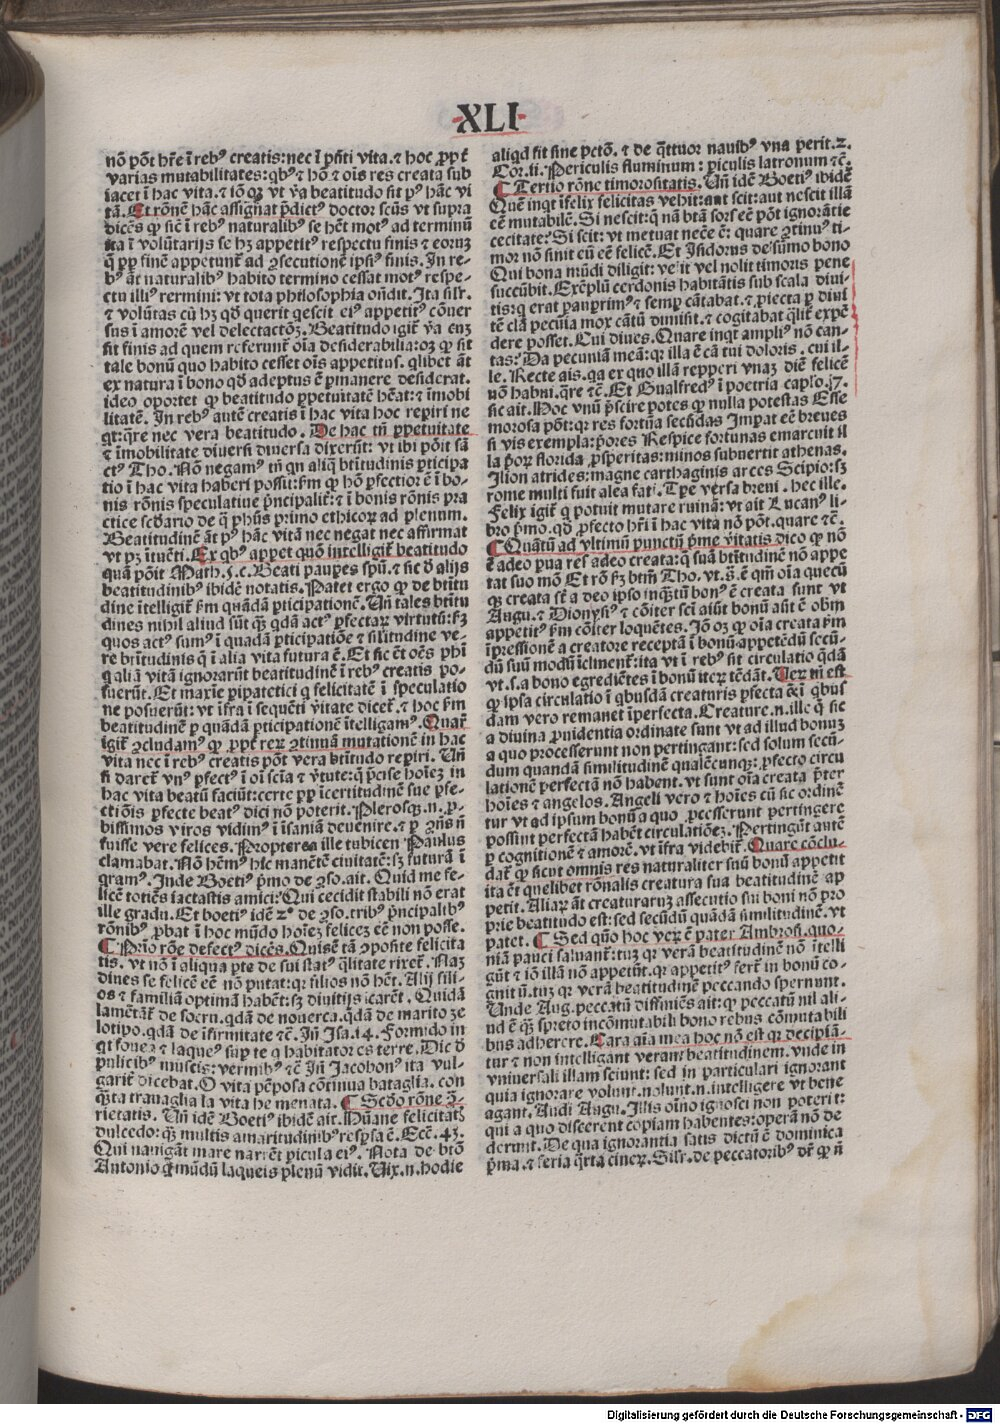 XLI
nō pōt hr̄e ī reb⁹ creatis: nec ī pn̄ti vita. ⁊ hoc ꝓpt̄
varias mutabilitates: qb⁹ ⁊ hō ⁊ ois res creata sub
iacet ī hac vita. ⁊ iō vt v̄a beatitudo sit p⁹ hāc vi
tā. Et rōnem hāc assignat p̄dict⁹ doctor scūs vt supra
dicēs ꝙ sic ī reb⁹ naturalib⁹ se hēt mot⁹ ad terminū
ita ī volūtarijs se hꝫ appetit⁹ respectu finis ⁊ eorum
q̄ ꝓp finē appetunt̄ ad ꝯsecutionē ipsi⁹ finis. In re-
b⁹ āt naturalib⁹ habito termino cessat mot⁹ respe-
ctu illi⁹ termini: vt tota philosophia ondit. Ita silr̄.
⁊ volūtas cū hꝫ qd̄ querit qescit ei⁹ appetit⁹ cōuer
sus ī amorē vel delectactōꝫ. Beatitudo igit̄ v̄a cuꝫ
sit finis ad quem referunt̄ oīa desiderabilia: oꝫ ꝙ sit
tale bonū quo habito cesset ois appetitus. qlibet āt
ex natura ī bono qd̄ adeptus ē ꝑmanere desiderat.
ideo oportet ꝙ beatitudo ꝑpetuitatē hēat: ⁊ īmobi
litatē. In reb⁹ autē creatis ī hac vita hoc reperiri ne
qt: qre nec vera beatitudo. De hac tn̄ ꝑpetuitate
⁊ īmobilitate diuersi diuersa dixerūt: vt ibi pōit sā
ct⁹ Tho. Nō negam⁹ tn̄ qn aliq̄ btītudinis ꝑticipa
tio ī hac vita haberi possit: fm̄ ꝙ hō ꝑfectior ē ī bo-
nis rōnis speculatiue p̄ncipalit̄: ⁊ ī bonis rōnis pra
ctice scd̄ario de q̄ phūs primo ethicoꝝ ad plenum.
Beatitudinē āt p⁹ hāc vitā nec negat nec affirmat
vt pꝫ ītuēti. Ex qb⁹ appet quō intelligit̄ beatitudo
quā pōit Math. 5. c. Beati pauꝑes spū. ⁊ sic d̄ alijs
beatitudinib⁹ ibidē notatis. Patet ergo ꝙ de btītu
dine ītelligit̄ fm̄ quādā ꝑticipationē. Un̄ tales btītu
dines nihil aliud sūt q̄ꝫ qdā act⁹ ꝑfectaꝝ virtutū: fꝫ
quos act⁹ sum⁹ ī quadā ꝑticipatiōe ⁊ sil'itudine ve-
re btītudinis q̄ ī alia vita futura ē. Et sic ēt oēs phī
q aliā vitā ignorarūt beatitudinē ī reb⁹ creatis po-
suerūt. Et maxīe ꝑipatetici q felicitatē ī speculatio
ne posuerūt: vt īfra ī sequēti v̄itate dicet̄. ⁊ hoc fm̄
beatitudinē ꝑ quādā ꝑticipationē ītelligam⁹. Quar̄
igit̄ ꝯcludam⁹ ꝙ ꝓpt̄ reꝝ ꝯtinuā mutationē in hac
vita nec ī reb⁹ creatis pōt vera btītudo repīri. Un̄
si daret̄ vn⁹ ꝑfect⁹ ī oī scīa ⁊ v̄tute: q̄ p̄cise hoīeꝫ in
hac vita beatū faciūt: certe ꝓp īcertitudinē sue ꝑfe-
ctiōis ꝑfecte beat⁹ dici nō poterit. Plerosq̨. n. ꝓ-
bissimos viros vidim⁹ ī īsaniā deuenire. ⁊ ꝑ ꝯn̄s n̄
fuisse vere felices. Propterea ille tubicen Paulus
clamabat. Nō hēm⁹ hīc manētē ciuitatē: sꝫ futurā ī
gram⁹. Inde Boeti⁹ p̄mo de ꝯso. ait. Quid me fe-
licē totiēs iactastis amici: Qui cecidit stabili nō erat
ille gradu. Et boeti⁹ idē 2° de ꝯso. trib⁹ p̄ncipalib⁹
rōnib⁹ ꝓbat ī hoc mūdo hoīeꝫ felicē eē non posse.
¶ Prīo rōe defect⁹ dicēs. Quisē tā ꝯposite felicita
tis. vt nō ī aliqua ꝑte de sui stat⁹ q̄litate rixet̄. Naꝫ
diues se felicē eē nō putat: qr filios nō hēt. Alij fili-
os ⁊ familiā optimā habēt: sꝫ diuitijs icarēt. Quidā
lamētāt̄ de socru. qdā de nouerca. qdā de marito ze
lotipo. qdā de īfirmitate ⁊c̄. In̄ Isa. 14. Formido in
qt fouea ⁊ laque⁹ suꝑ te q habitator es terre. Dic d̄
pulicib⁹ muscis: vermib⁹ ⁊c̄ In̄ Jacobon⁹ ita vul-
garit̄ dicebat. O vita pēposa cōtinua bataglia. con
q̄sta trauaglia la vita he menata. ¶ Scd̄o rōne ꝯ̄-
rietatis. Un̄ idē Boeti⁹ ibidē ait. Huāne felicitat
dulcedo: q̄ꝫ multis amaritudinib⁹ respsa ē. Eccī. 43.
Qui nauigāt mare narrēt ꝑicula ei⁹. Nota de btō
Antonio q̄ mūdū laqueis plenū vidit. Uix. n. hodie
aliqd sit sine pctō. ⁊ de q̄ttuor nauib⁹ vna perit. 2.
Cor. ii. Periculis fluminum: ꝑiculis latronum ⁊c̄.
¶ Tertio rōne timorositatis. Un̄ idē Boeti⁹ ibidē
Quē inqt īfelix felicitas vehit: aut scit: aut nescit illā
eē mutabilē. Si nescit: q̄ nā btā sors eē pōt ignorātie
cecitate: Si scit: vt metuat necē ē: quare ꝯtinu⁹ ti-
mor nō sinit eū eē felicē. Et Isidorus de sūmo bono
Qui bona mūdi diligit: velit vel nolit timoris pene
succūbit. Exēplū cerdonis habitātis sub scala diui-
tis: q erat pauꝑrim⁹ ⁊ semꝑ cātabat. ⁊ ꝓiecta ꝑ diui
tē clā pecūia mox cātū dimisit. ⁊ cogitabat q̄lit̄ expē
dere posset. Cui diues. Quare inqt ampli⁹ nō can-
tas: Da pecuniā meā: qr illa ē cā tui doloris. cui il-
le. Recte ais. qa ex quo illā repperi vnaꝫ diē felicē
nō habui. q̄re ⁊c̄. Et Gualfred⁹ ī poetria capl'o. 17.
sic ait. Hoc vnū p̄scire potes ꝙ nulla potestas Esse
morosa pōt: qr res fortūa secūdas Imꝑat eē breues
si vis exempla: p̄ores Respice fortunas emarcuit il
la p̄oꝝ florida ꝓsperitas: minos subuertit athenas.
Ilion atrides: magne carthaginis arces Scipio: sꝫ
rome multi fuit alea fati. Tꝑe versa breui. hec ille.
Felix igit̄ q potuit mutare ruinā: vt ait Lucan⁹ li-
bro p̄mo. qd̄ ꝓfecto hr̄i ī hac vita nō pōt. quare ⁊c̄.
¶ Quātū ad vltimū punctū p̄me v̄itatis dico ꝙ nō
ē adeo ꝑua res adeo creata: q̄ suā btītudinē nō appe
tat suo mō Et rō fꝫ btm̄ Tho. vt. s̄. ē qm̄ oīa quecū
q̨ creata st̄ a deo ipso inq̄tū bon⁹ ē creata sunt vt
Augu. ⁊ Dionysi⁹ ⁊ cōiter sci aiūt bonū aūt ē obm̄
appetit⁹ fm̄ cōiter loquētes. Iō oꝫ ꝙ oīa creata fm̄
īpressionē a creatore receptā ī bonū appetēdū secū-
dū suū modū īclinent̄: ita vt ī reb⁹ sit circulatio q̄dā
vt. s. a bono egrediētes ī bonū iteꝝ tēdāt. Ueꝝ tn̄ est
ꝙ ipsa circulatio ī qbusdā creaturis ꝑfecta ē: ⁊ ī qbus
dam vero remanet īperfecta. Creature. n. ille q̄ sic
a diuina ꝓuidentia ordinate sunt vt ad illud bonuꝫ
a quo processerunt non pertingant: sed solum secū-
dum quandā similitudinē qualēcunqꝫ: ꝑfecto circu
lationē perfectā nō habent. vt sunt oīa creata p̄ter
hoīes ⁊ angelos. Angeli vero ⁊ hoīes cū sic ordinē
tur vt ad ipsum bonū a quo ꝓcesserunt pertingere
possint perfectā habēt circulatiōeꝫ. Pertingūt autē
ꝑ cognitionē ⁊ amorē. vt īfra videbit̄. Quare cōclu-
dat̄ ꝙ sicut omnis res naturaliter suū bonū appetit
ita ēt quelibet rōnalis creatura sua beatitudinē ap
petit. Aliaꝝ āt creaturaruꝫ assecutio sui boni nō pro
prie beatitudo est: sed secūdū quādā similitudinē. vt
patet. ¶ Sed quō hoc veꝝ ē pater Ambrosi. quo-
niā pauci saluant̄: tuꝫ qr verā beatitudinē nō ītelli
gūt ⁊ iō illā nō appetūt. qr appetit⁹ fert̄ in bonū co-
gnitū. tuꝫ qr verā beatitudinē peccando spernunt.
Unde Aug. peccatū diffiniēs ait: ꝙ peccatū nil ali-
ud ē q̄ꝫ spreto incōmutabili bono rebus cōmutabili
bus adherere. Cara aīa mea hoc nō est qr decipiā-
tur ⁊ non intelligant veram beatitudinem. vnde in
vniuersali illam sciunt: sed in particulari ignorant
quia ignorare volunt. nolunt. n. intelligere vt bene
agant. Audi Augu. Illis oīno ignosci non poterit:
qui a quo discerent copiam habentes: operā nō de
derunt. De qua ignorantia satis dictū ē dominica
p̄ma. ⁊ feria q̄rta cineꝝ. Silr̄. de peccatorib⁹ dr̄ ꝙ n̄
Digitalisierung gefördert durch die Deutsche Forschungsgemeinschaft - DFG